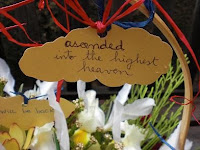 ascended
into the highest
heaven